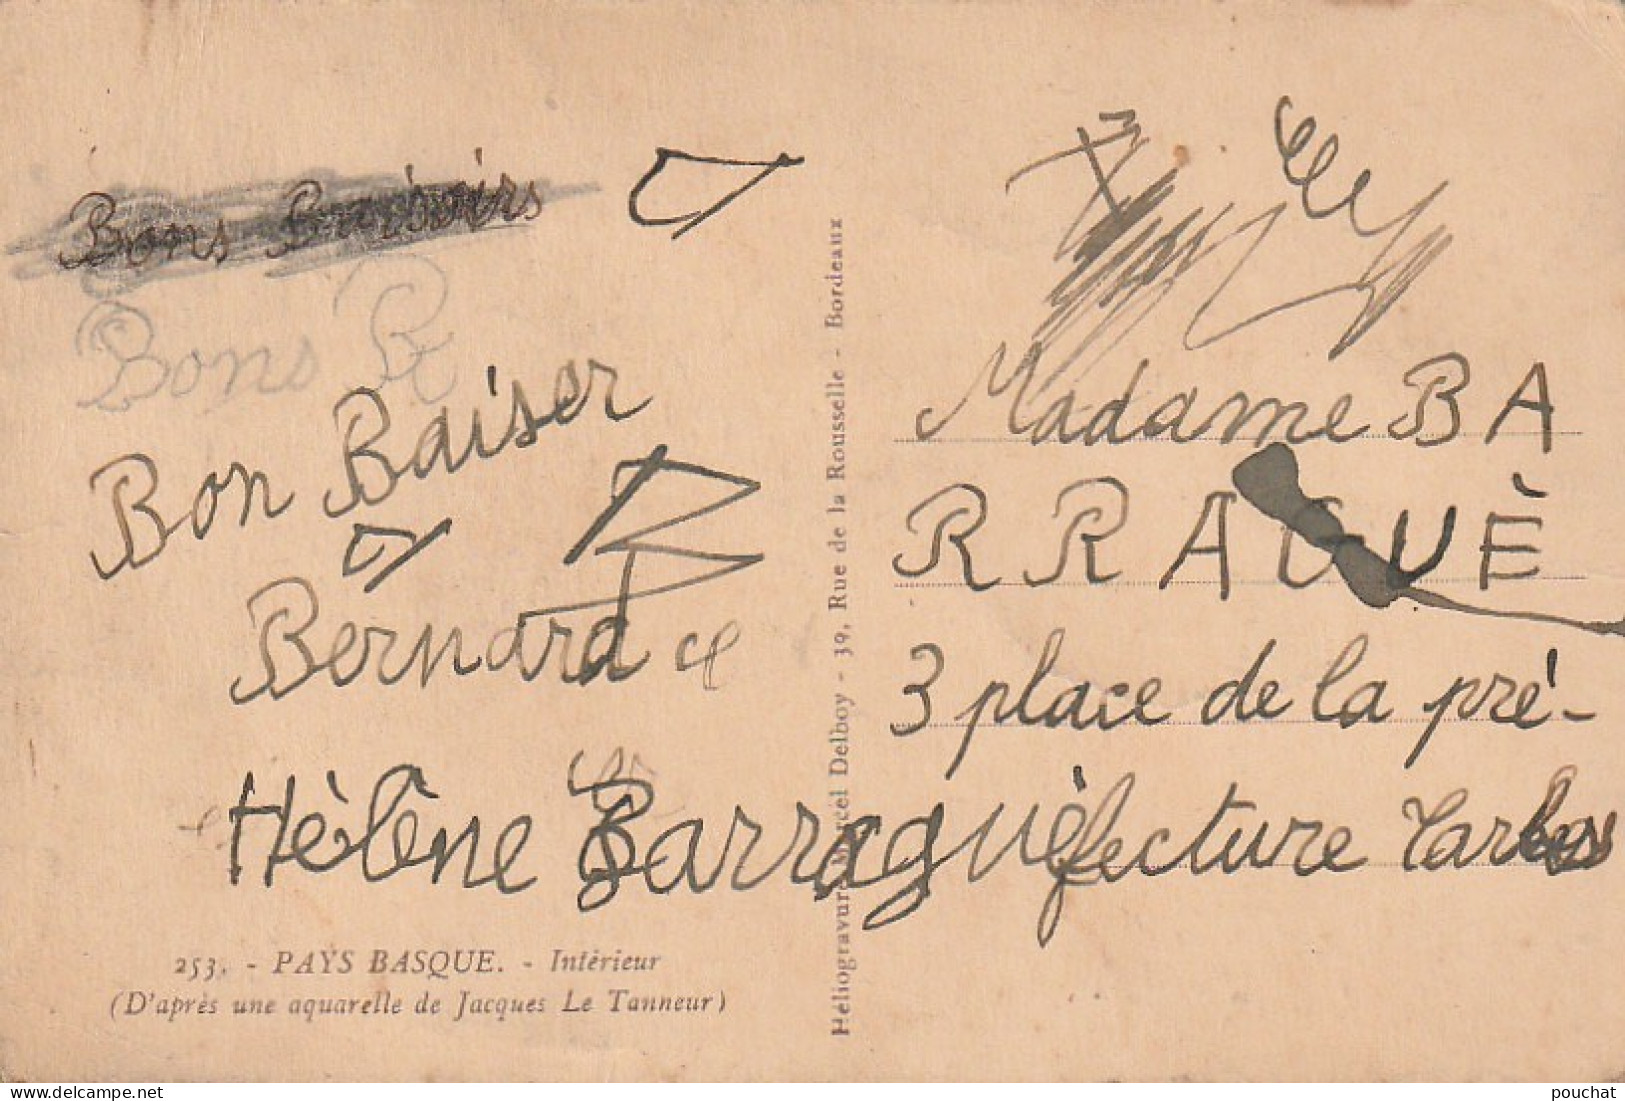 Bons Baisers
Bons B
Bon Baiser
Bernard
Hélène Barraguè
253. - PAYS BASQUE. - Intérieur
(D'après une aquarelle de Jacques Le Tanneur)
Héliogravure Marcel Delboy - 39, Rue de la Rousselle - Bordeaux
Madame BA
RRAGUÈ
3 place de la pré-
fecture Tarbes
pouchat